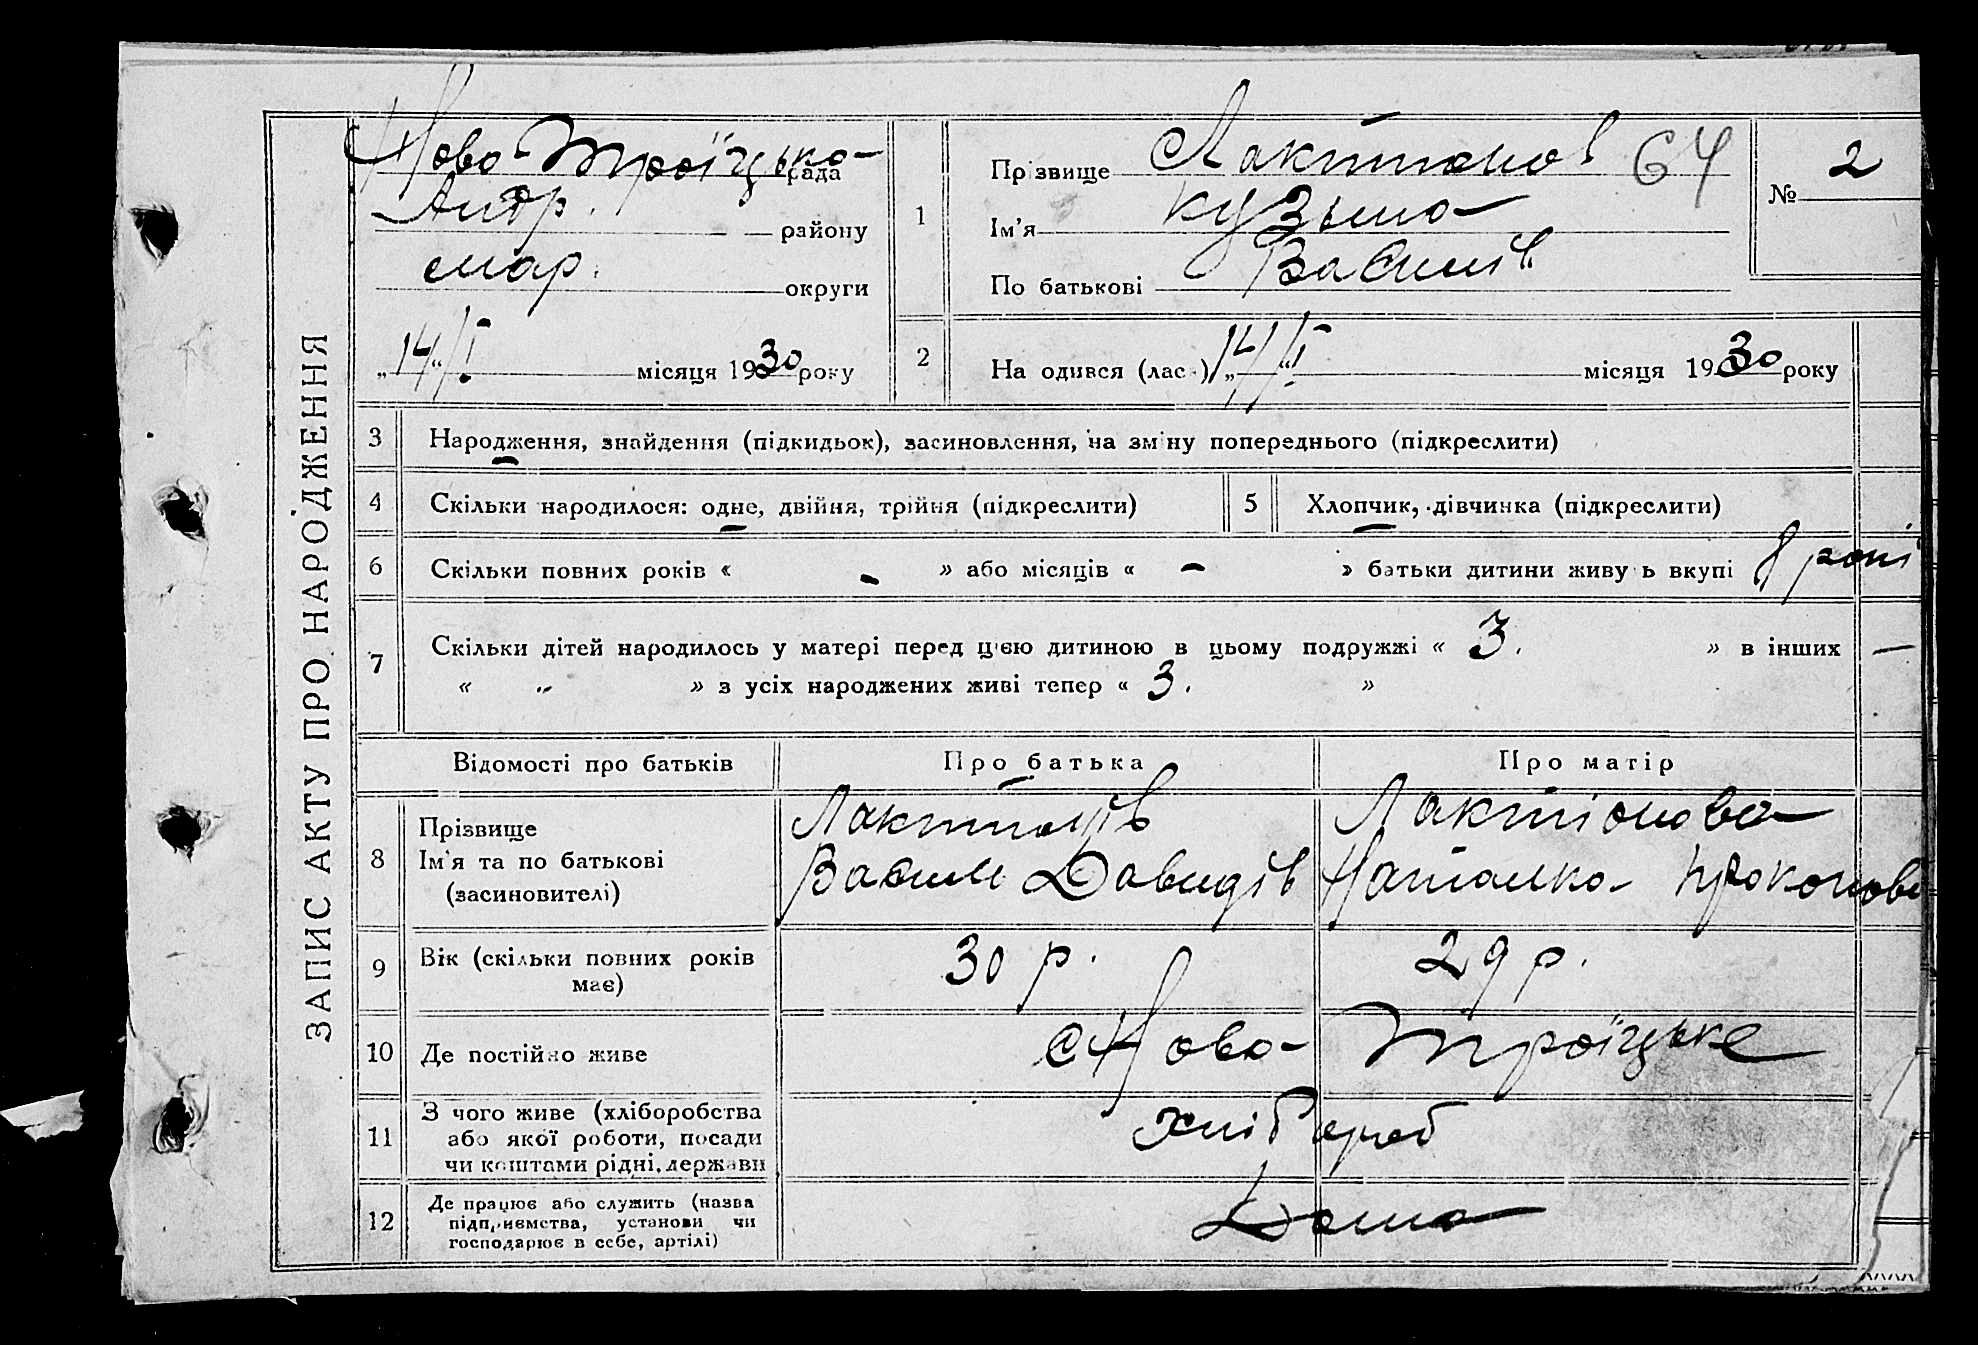 ЗАПИС АКТУ ПРО НАРОДЖЕННЯ
Ново-Троїцька рада
Андр. району
мар. округи
„14“/I місяця 1930 року
1 Прізвище Лактіонов 64
Ім'я Кузьма
По батькові Василів
№ 2
2 На одився (лас.) „14“/I місяця 1930 року
3 Народження, знайдення (підкидьок), засиновлення, на зміну попереднього (підкреслити)
4 Скільки народилося: одне, двійня, трійня (підкреслити)
5 Хлопчик, дівчинка (підкреслити)
6 Скільки повних років « - » або місяців « - » батьки дитини живу ь вкупі 8 років
7 Скільки дітей народилось у матері перед цією дитиною в цьому подружжі « 3. » в інших —
« „ » з усіх народжених живі тепер « 3. »
Відомості про батьків Про батька Про матір
8 Прізвище
Ім'я та по батькові
(засиновителі)
Лактіонів
Василь Давидів
Лактіонова
Наталка Прокопова
9 Вік (скільки повних років
має)
30 р. 29 р.
10 Де постійно живе Ново-Троїцьке
11 З чого живе (хліборобства
або якої роботи, посади
чи коштами рідні, держави
хлібороб
12 Де працює або служить (назва
підприємства, установи чи
господарює в себе, артілі)
Дома